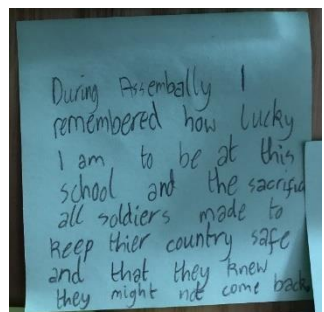 During Assembally I
remembered how lucky
I am to be at this
school and the sacrific
all soldiers made to
keep thier country safe
and that they knew
they might not come back.